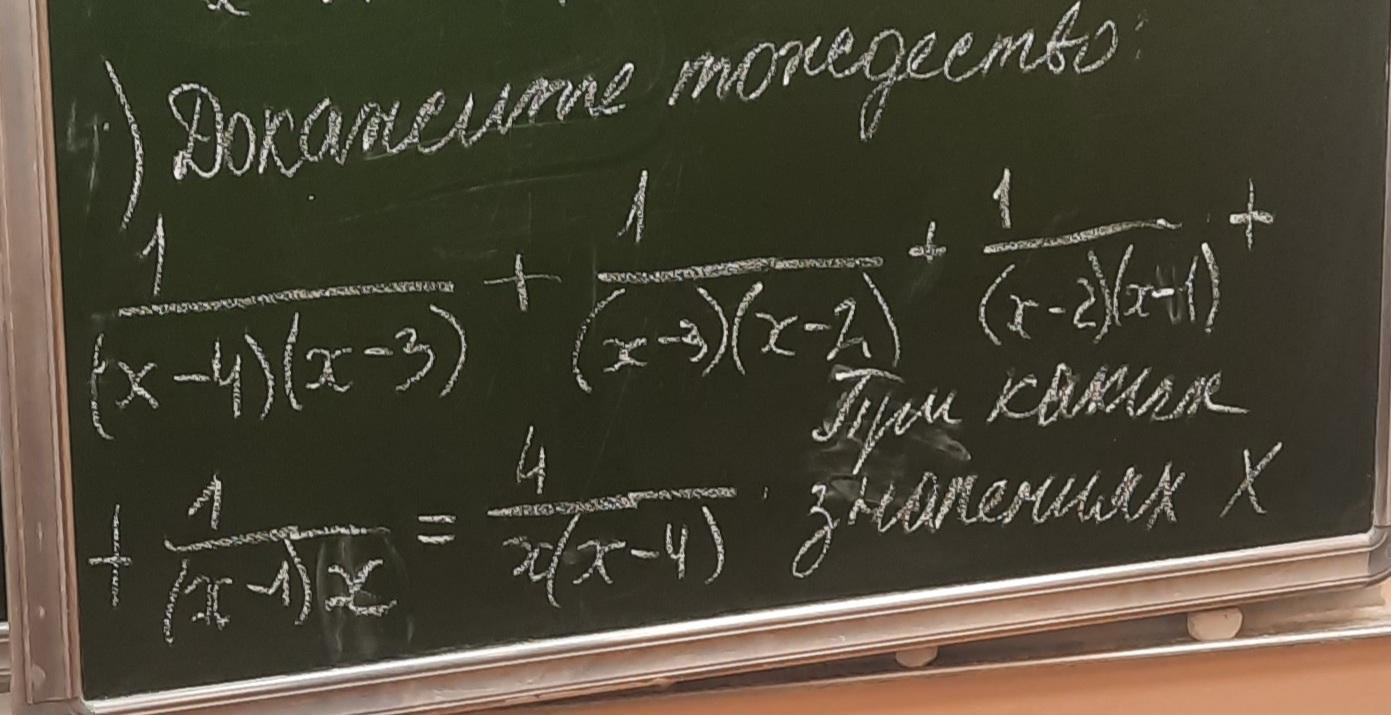 4) Докажите тождество:
1/((x-4)(x-3)) + 1/((x-3)(x-2)) + 1/((x-2)(x-1)) +
+ 1/((x-1)x) = 4/(x(x-4)). При каких
значениях X